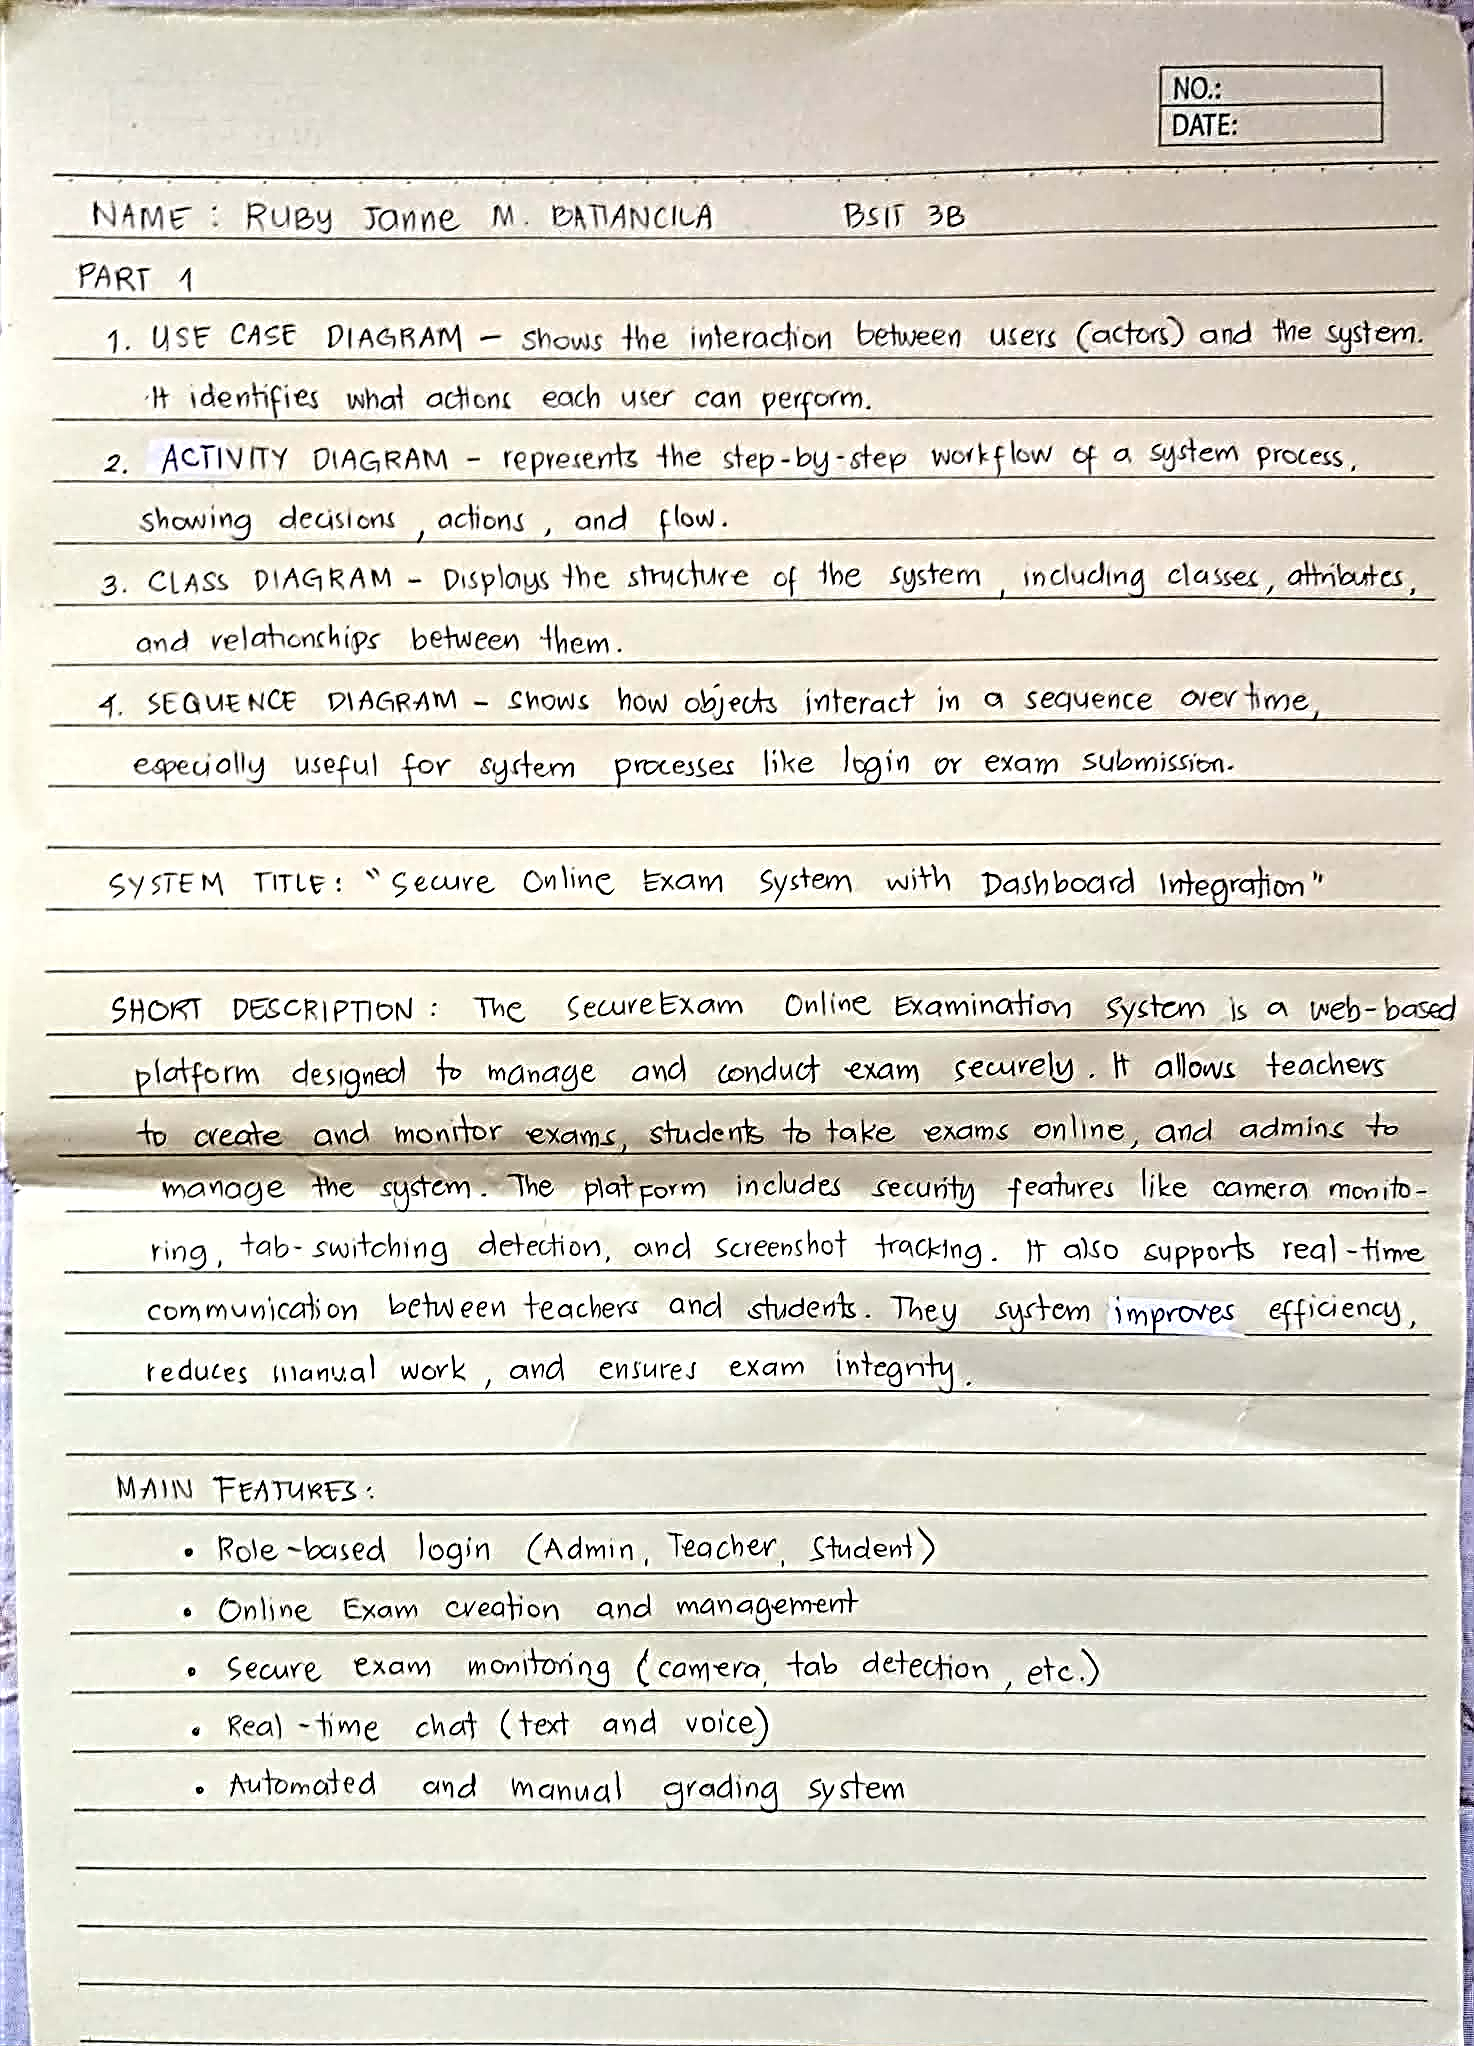 NO.:
DATE:
NAME : RUBY Janne M. BATIANCILA BSIT 3B
PART 1
1. USE CASE DIAGRAM – shows the interaction between users (actors) and the system.
It identifies what actions each user can perform.
2. ACTIVITY DIAGRAM – represents the step-by-step workflow of a system process,
showing decisions, actions, and flow.
3. CLASS DIAGRAM – Displays the structure of the system, including classes, attributes,
and relationships between them.
4. SEQUENCE DIAGRAM – shows how objects interact in a sequence over time,
especially useful for system processes like login or exam submission.
SYSTEM TITLE: "Secure Online Exam System with Dashboard Integration"
SHORT DESCRIPTION : The SecureExam Online Examination System is a web-based
platform designed to manage and conduct exam securely. It allows teachers
to create and monitor exams, students to take exams online, and admins to
manage the system. The platform includes security features like camera monito-
ring, tab-switching detection, and screenshot tracking. It also supports real-time
communication between teachers and students. They system improves efficiency,
reduces manual work, and ensures exam integrity.
MAIN FEATURES:
• Role-based login (Admin, Teacher, Student)
• Online Exam creation and management
• Secure exam monitoring (camera, tab detection, etc.)
• Real-time chat (text and voice)
• Automated and manual grading system